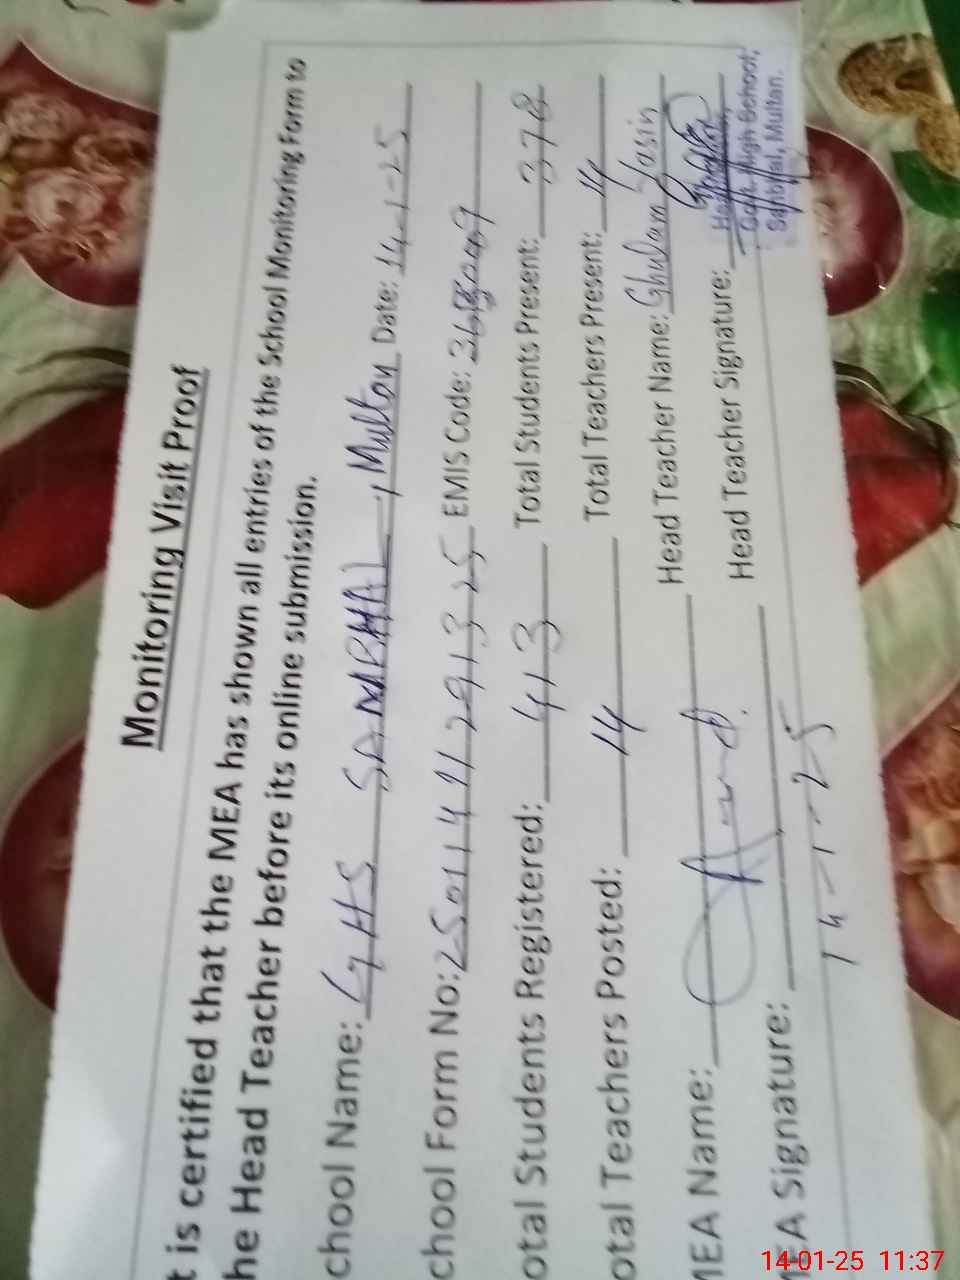 Monitoring Visit Proof
t is certified that the MEA has shown all entries of the School Monitoring Form to
he Head Teacher before its online submission.
chool Name: GHS SAMBHAL, Multan Date: 14-1-25
chool Form No: 25011411291325 EMIS Code:
otal Students Registered: 413 Total Students Present: 378
otal Teachers Posted: 14 Total Teachers Present: 14
MEA Name: Head Teacher Name: Ghulam Yasin
MEA Signature: Head Teacher Signature:
Govt. High School,
Multan.
14-1-25
14-01-25 11:37